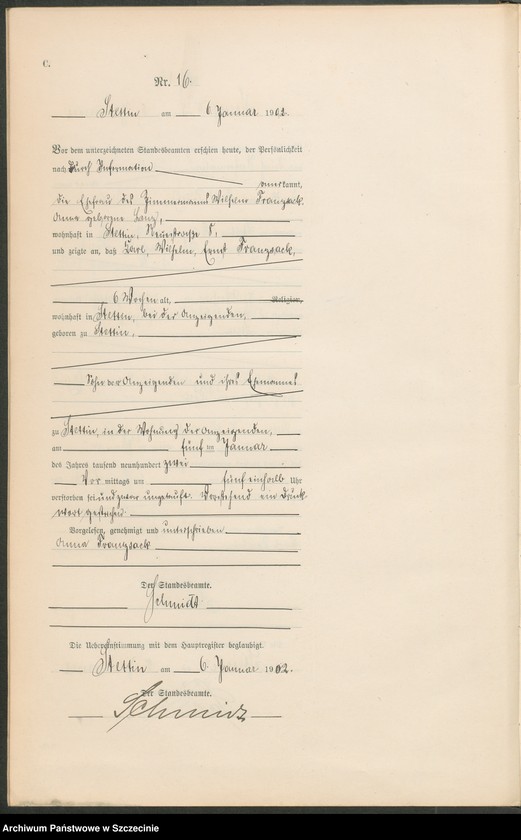 C.
Nr. 16.
Stettin am 6 Januar 1902.
Vor dem unterzeichneten Standesbeamten erschien heute, der Persönlichkeit
nach durch Information
anerkannt,
die Ehefrau des Zimmermanns Wilhelm Franzsack
Anna geborene Lanz,
wohnhaft in Stettin, 8,
und zeigte an, daß Carl, Wilhelm, Ernst Franzsack,
6 Wochen alt, Religion,
wohnhaft in Stettin, bei der Anzeigenden,
geboren zu Stettin,
Sohn der Anzeigenden und ihres Ehemannes
zu Stettin, in der Wohnung der Anzeigenden,
am fünf ten Januar
des Jahres tausend neunhundert zwei
Vor mittags um fünf einhalb Uhr
verstorben sei und zwar ungetauft. Vorstehend ein Druck-
wort gestrichen.
Vorgelesen, genehmigt und unterschrieben
Anna Franzsack
Der Standesbeamte.
Schmidt
Die Uebereinstimmung mit dem Hauptregister beglaubigt.
Stettin am 6. Januar 1902.
Der Standesbeamte.
Schmidt
Archiwum Państwowe w Szczecinie